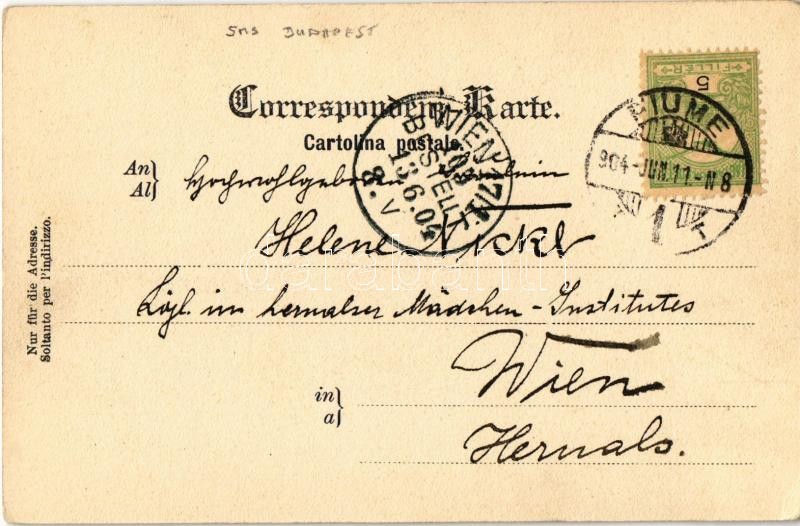 SMS BUDAPEST
5
FILLÉR
FIUME
904-JUN.11.-N8
Correspondenz-Karte.
Cartolina postale.
WIEN 17/1
BESTELLT
13.6.04
8.V
An
Al
Hochwohlgeboren Fräulein
Helene Nickl
Zögl. im hernalser Mädchen-Institutes
Wien
in
a
Hernals.
Nur für die Adresse.
Soltanto per l'indirizzo.
darabanth